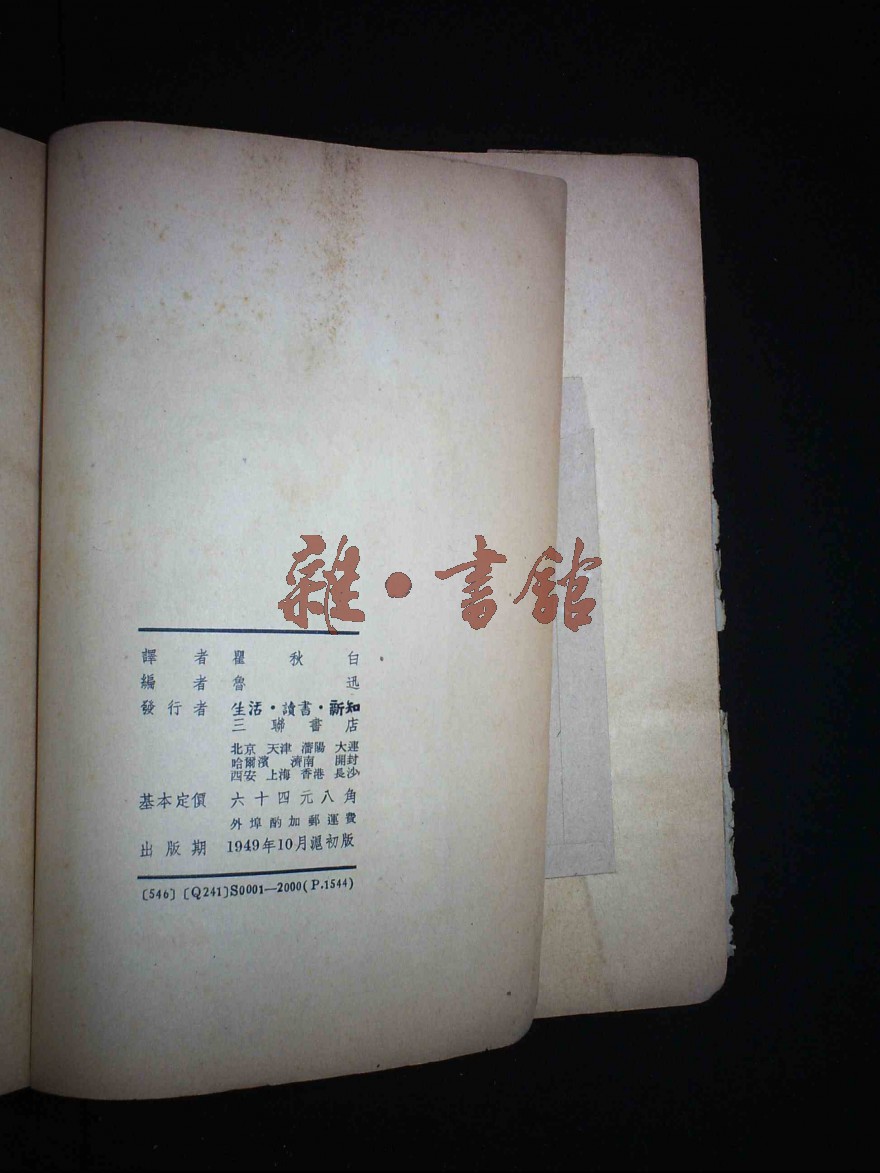 雜·書舘
譯者 瞿秋白
編者 魯迅
發行者 生活·讀書·新知
三聯書店
北京 天津 瀋陽 大連
哈爾濱 濟南 開封
西安 上海 香港 長沙
基本定價 六十四元八角
外埠酌加郵運費
出版期 1949年10月滬初版
〔546〕〔Q241〕S0001—2000(P.1544)